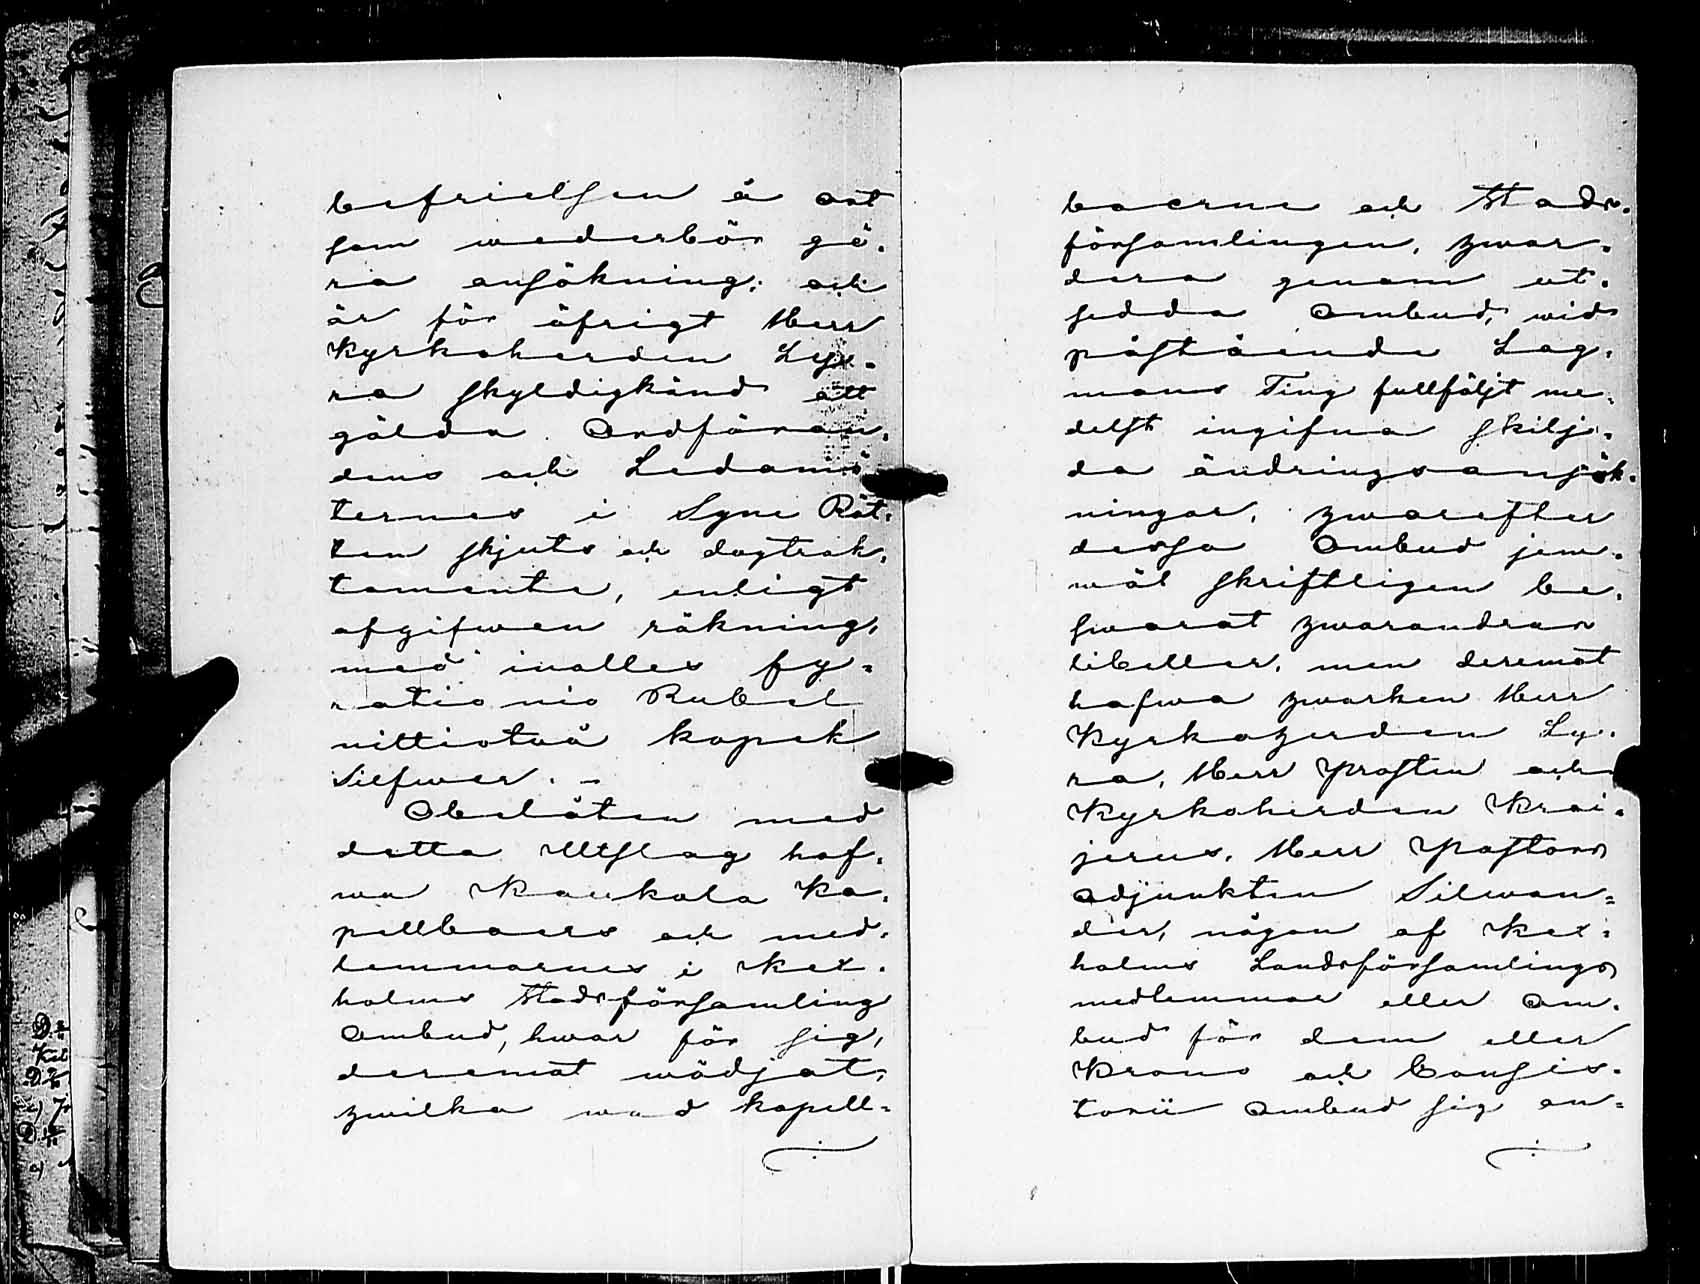 befrielsen å ort
som wederbör gö-
ra ansökning; och
är för öfrigt Herr
Kyrkoherden Ly-
ra skyldigkänd att
gälda Ordföran-
dens och Ledamö-
ternes i Syne Rät-
ten skjuts och dagtrak-
tamente, enligt
afgifwen räkning,
med inalles fy-
ratio nio Rubel
nittiotvå kopek
Silfwer. -
Obelåten med
detta Utslag haf-
wa Kaukola Ka-
pellboers och med-
lemmarnes i Kex-
holms Stadsförsamling
Ombud, hwar för sig,
deremot wädjat,
hwilka wad kapell-
boerne och Stads-
församlingen, hwar-
dera genom ut-
sedda Ombud, wid
påstående Lag-
mans Ting fullföljt me-
delst ingifna skilj-
da ändringsansök-
ningar, hwarefter
dessa Ombud jem-
wäl skriftligen be-
swarat hwarandras
libeller, men deremot
hafwa hwarken Herr
Kyrkoherden Ly-
ra, Herr Prosten och
Kyrkoherden Krai-
jerus, Herr Pastors
Adjunkten Silwan-
der, någon af Kex-
holms Landsförsamlings
medlemmar eller Om-
bud för dem eller
Krono och Consis-
torii Ombud sig an-